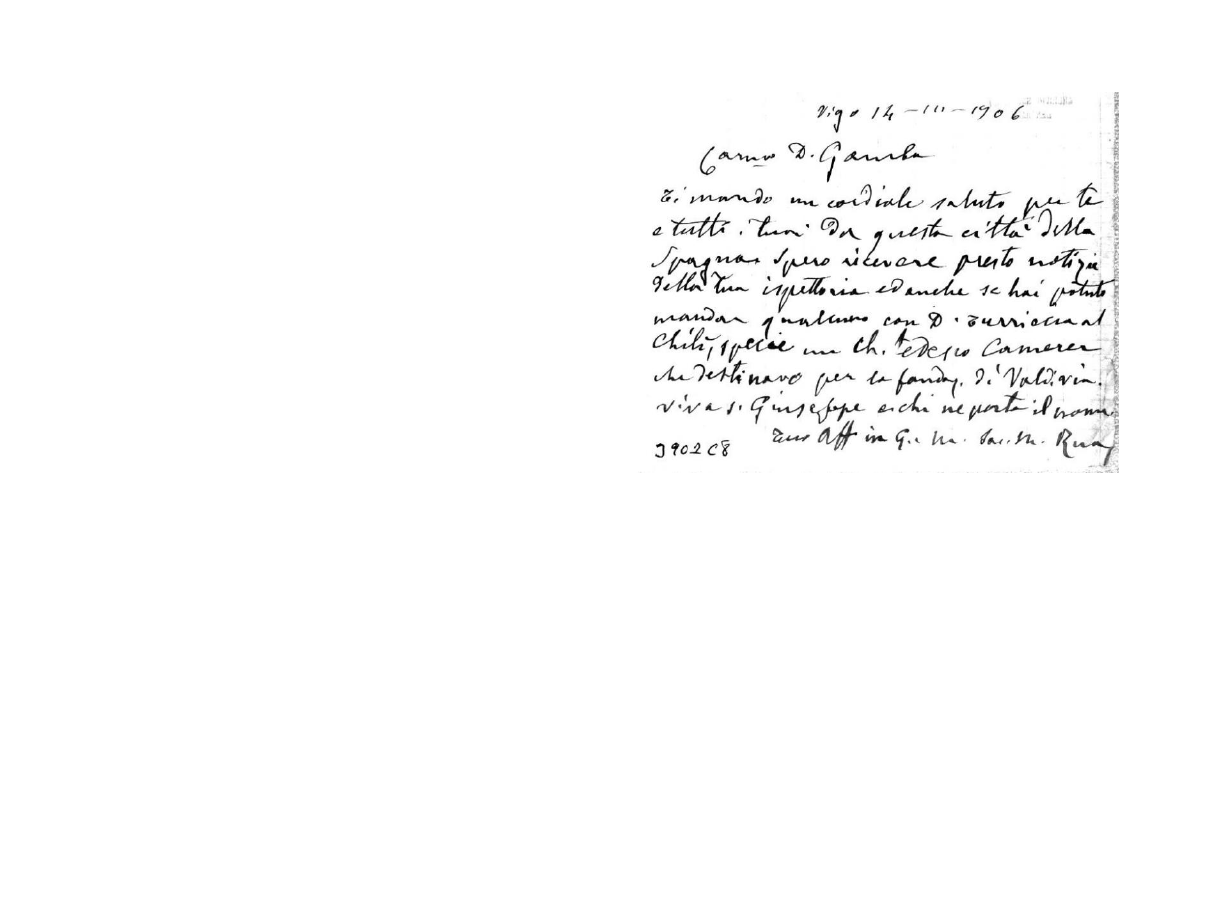 Vigo 14-III-1906
Car.mo D. Gamba
Ti mando un cordiale saluto per te
e tutti i tuoi da questa città della
Spagna. Spero ricevere presto notizie
della tua ispettoria ed anche se hai potuto
mandar qualcuno con D. al
Chilì, specie un Ch. tedesco Camerer
che destinavo per la fondaz. di Valdivia.
viva S. Giuseppe e chi ne porta il nome.
Tuo Aff in G. M. Sac. M. Rua
3902C8